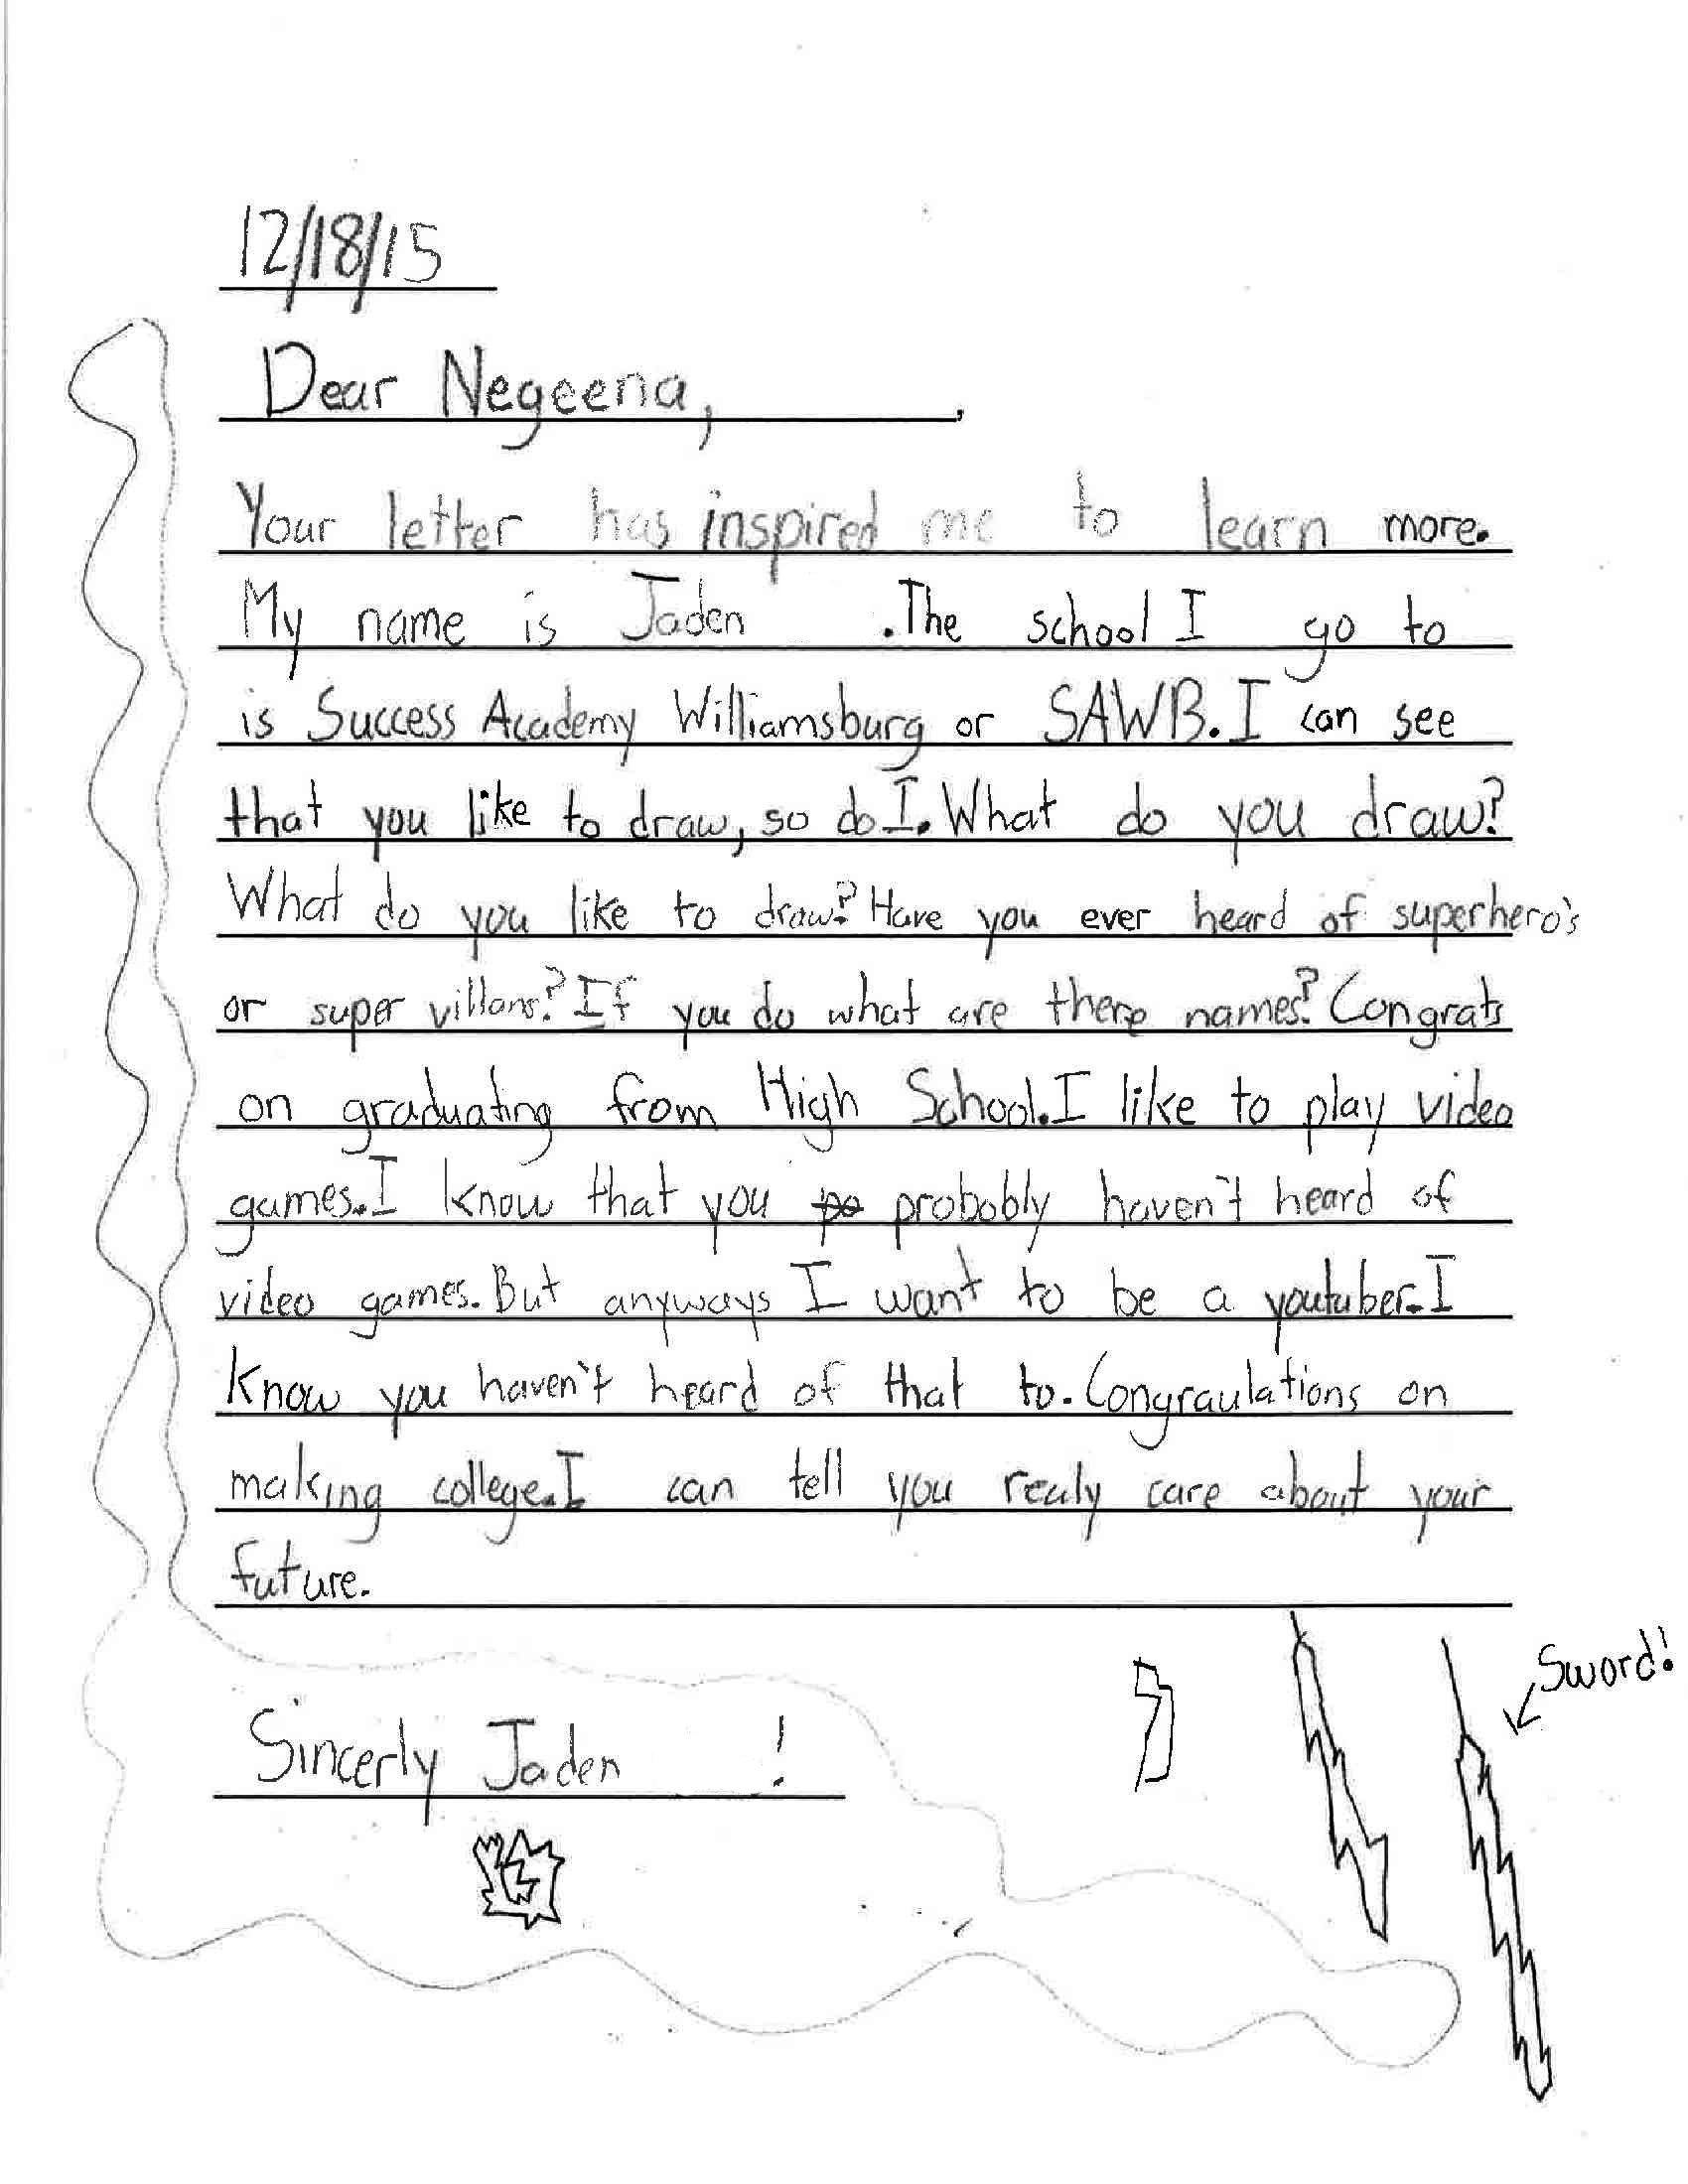 12/18/15
Dear Negeena,
Your letter has inspired me to learn more.
My name is Jaden .The school I go to
is Success Academy Williamsburg or SAWB. I can see
that you like to draw, so do I. What do you draw?
What do you like to draw? Have you ever heard of superhero's
or super villans? If you do what are there names? Congrats
on graduating from High School. I like to play video
games. I know that you po probobly haven't heard of
video games. But anyways I want to be a youtuber. I
know you haven't heard of that to. Congraulations on
making college. I can tell you realy care about your
future.
Sword!
Sincerly Jaden !